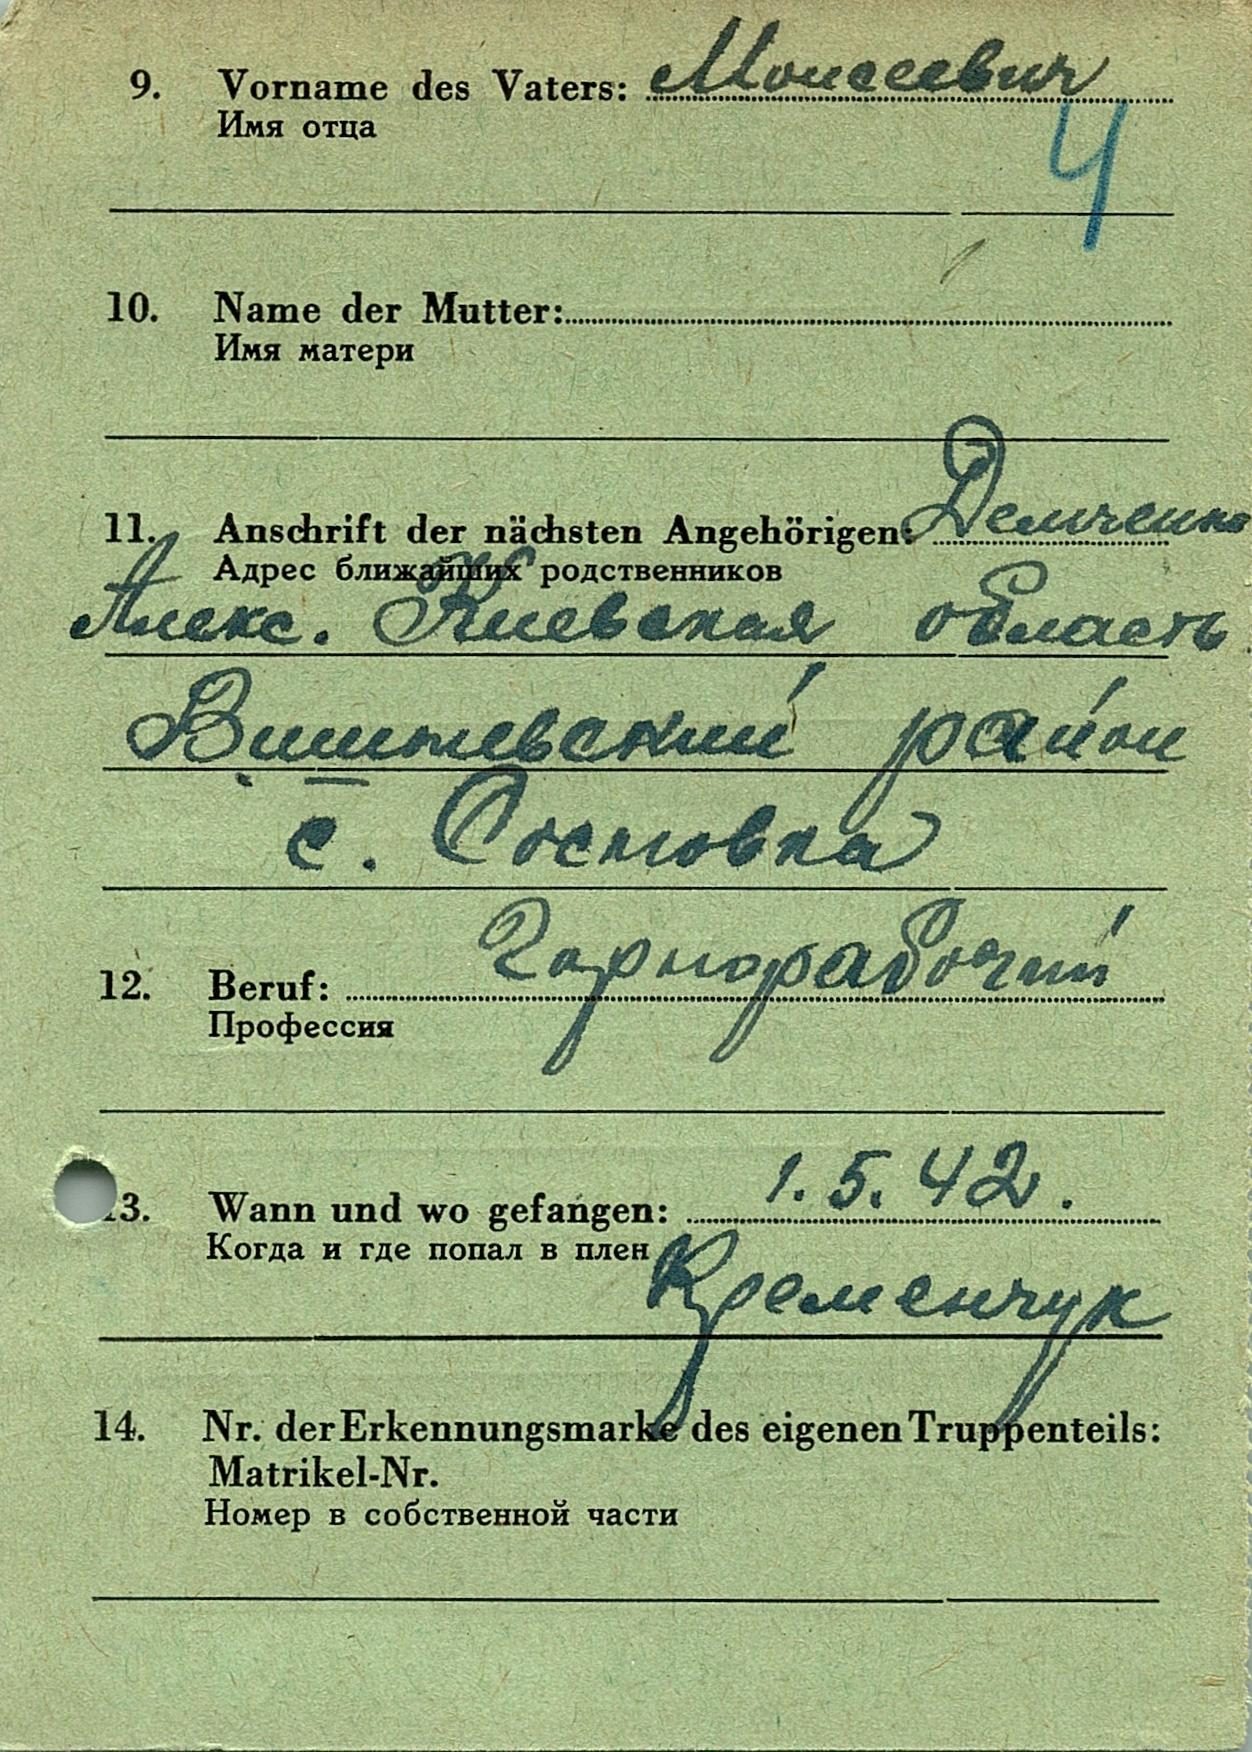 9. Vorname des Vaters: Моисеевич
Имя отца
4
10. Name der Mutter:
Имя матери
11. Anschrift der nächsten Angehörigen: Демченко
Адрес ближайших родственников
Алекс. Киевская область
район
с. Сосновка
12. Beruf: Горнорабочий
Профессия
13. Wann und wo gefangen: 1.5.42.
Когда и где попал в плен
Кременчук
14. Nr. der Erkennungsmarke des eigenen Truppenteils:
Matrikel-Nr.
Номер в собственной части